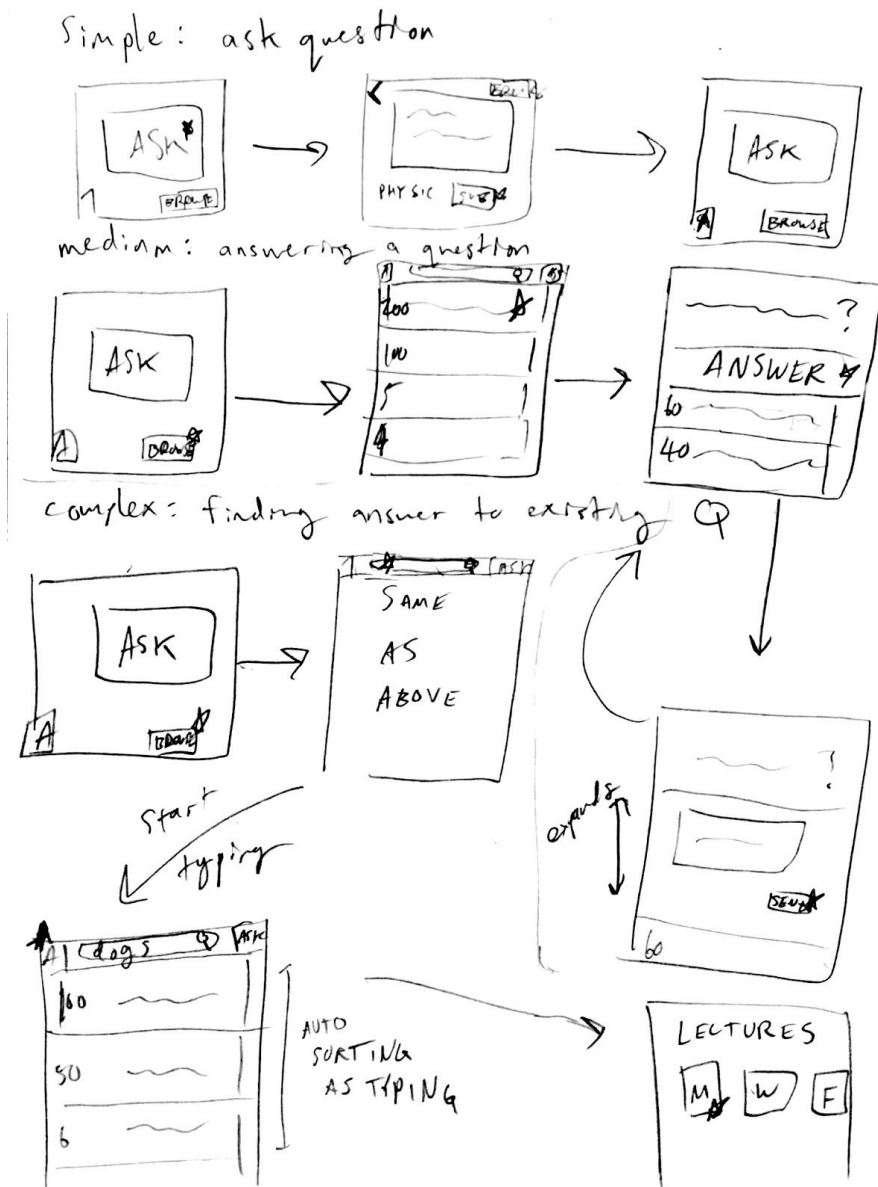 Simple: ask question
ASK
BROWSE
BROWSE
PHYSIC
SUB
ASK
A
BROWSE
medium: answering a question
ASK
A
BROWSE
A
Q
200
100
5
?
ANSWER
60
40
complex: finding answer to existing Q
ASK
A
BROWSE
ASK
SAME
AS
ABOVE
start
typing
expands
?
SEND
60
A
dogs
Q
ASK
100
50
6
AUTO
SORTING
AS TYPING
LECTURES
M
W
F